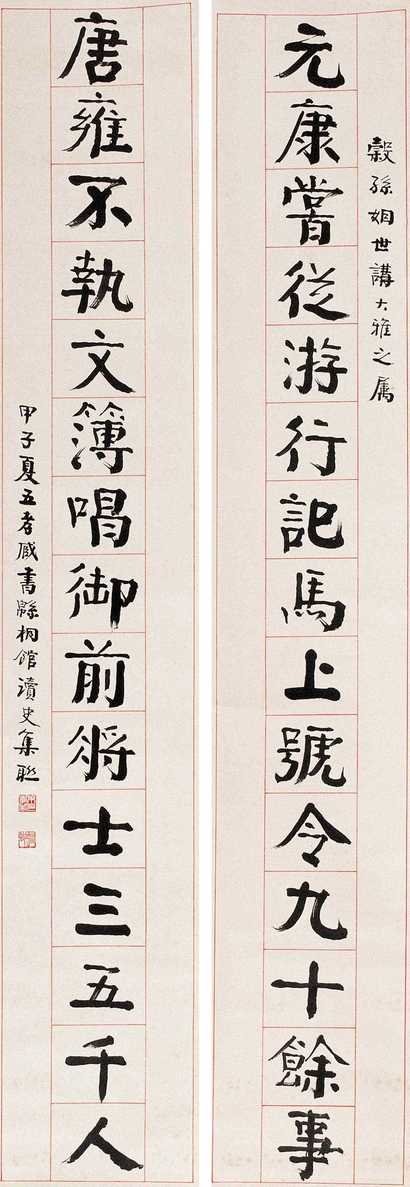 穀孫姻世講大雅之屬
元康嘗從游行記馬上號令九十餘事
唐雍不執文簿唱御前將士三五千人
甲子夏五孝臧書緜桐館讀史集聯